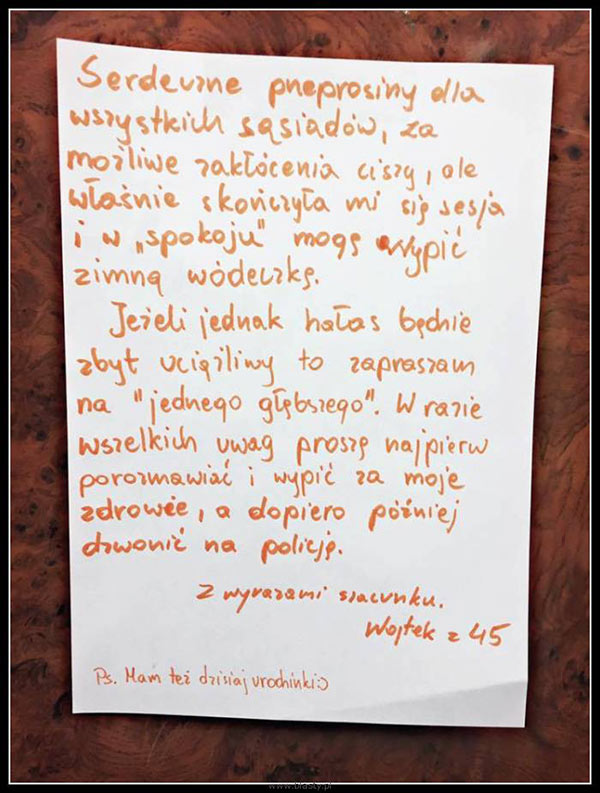 Serdeczne przeprosiny dla
wszystkich sąsiadów, za
możliwe zakłócenia ciszy, ale
właśnie skończyła mi się sesja
i w „spokoju" mogę wypić
zimną wódeczkę.
Jeżeli jednak hałas będzie
zbyt uciążliwy to zapraszam
na "jednego głębszego". W razie
wszelkich uwag proszę najpierw
porozmawiać i wypić za moje
zdrowie, a dopiero później
dzwonić na policję.
Z wyrazami szacunku.
Wojtek z 45
Ps. Mam też dzisiaj urodzinki:)
www.blasty.pl